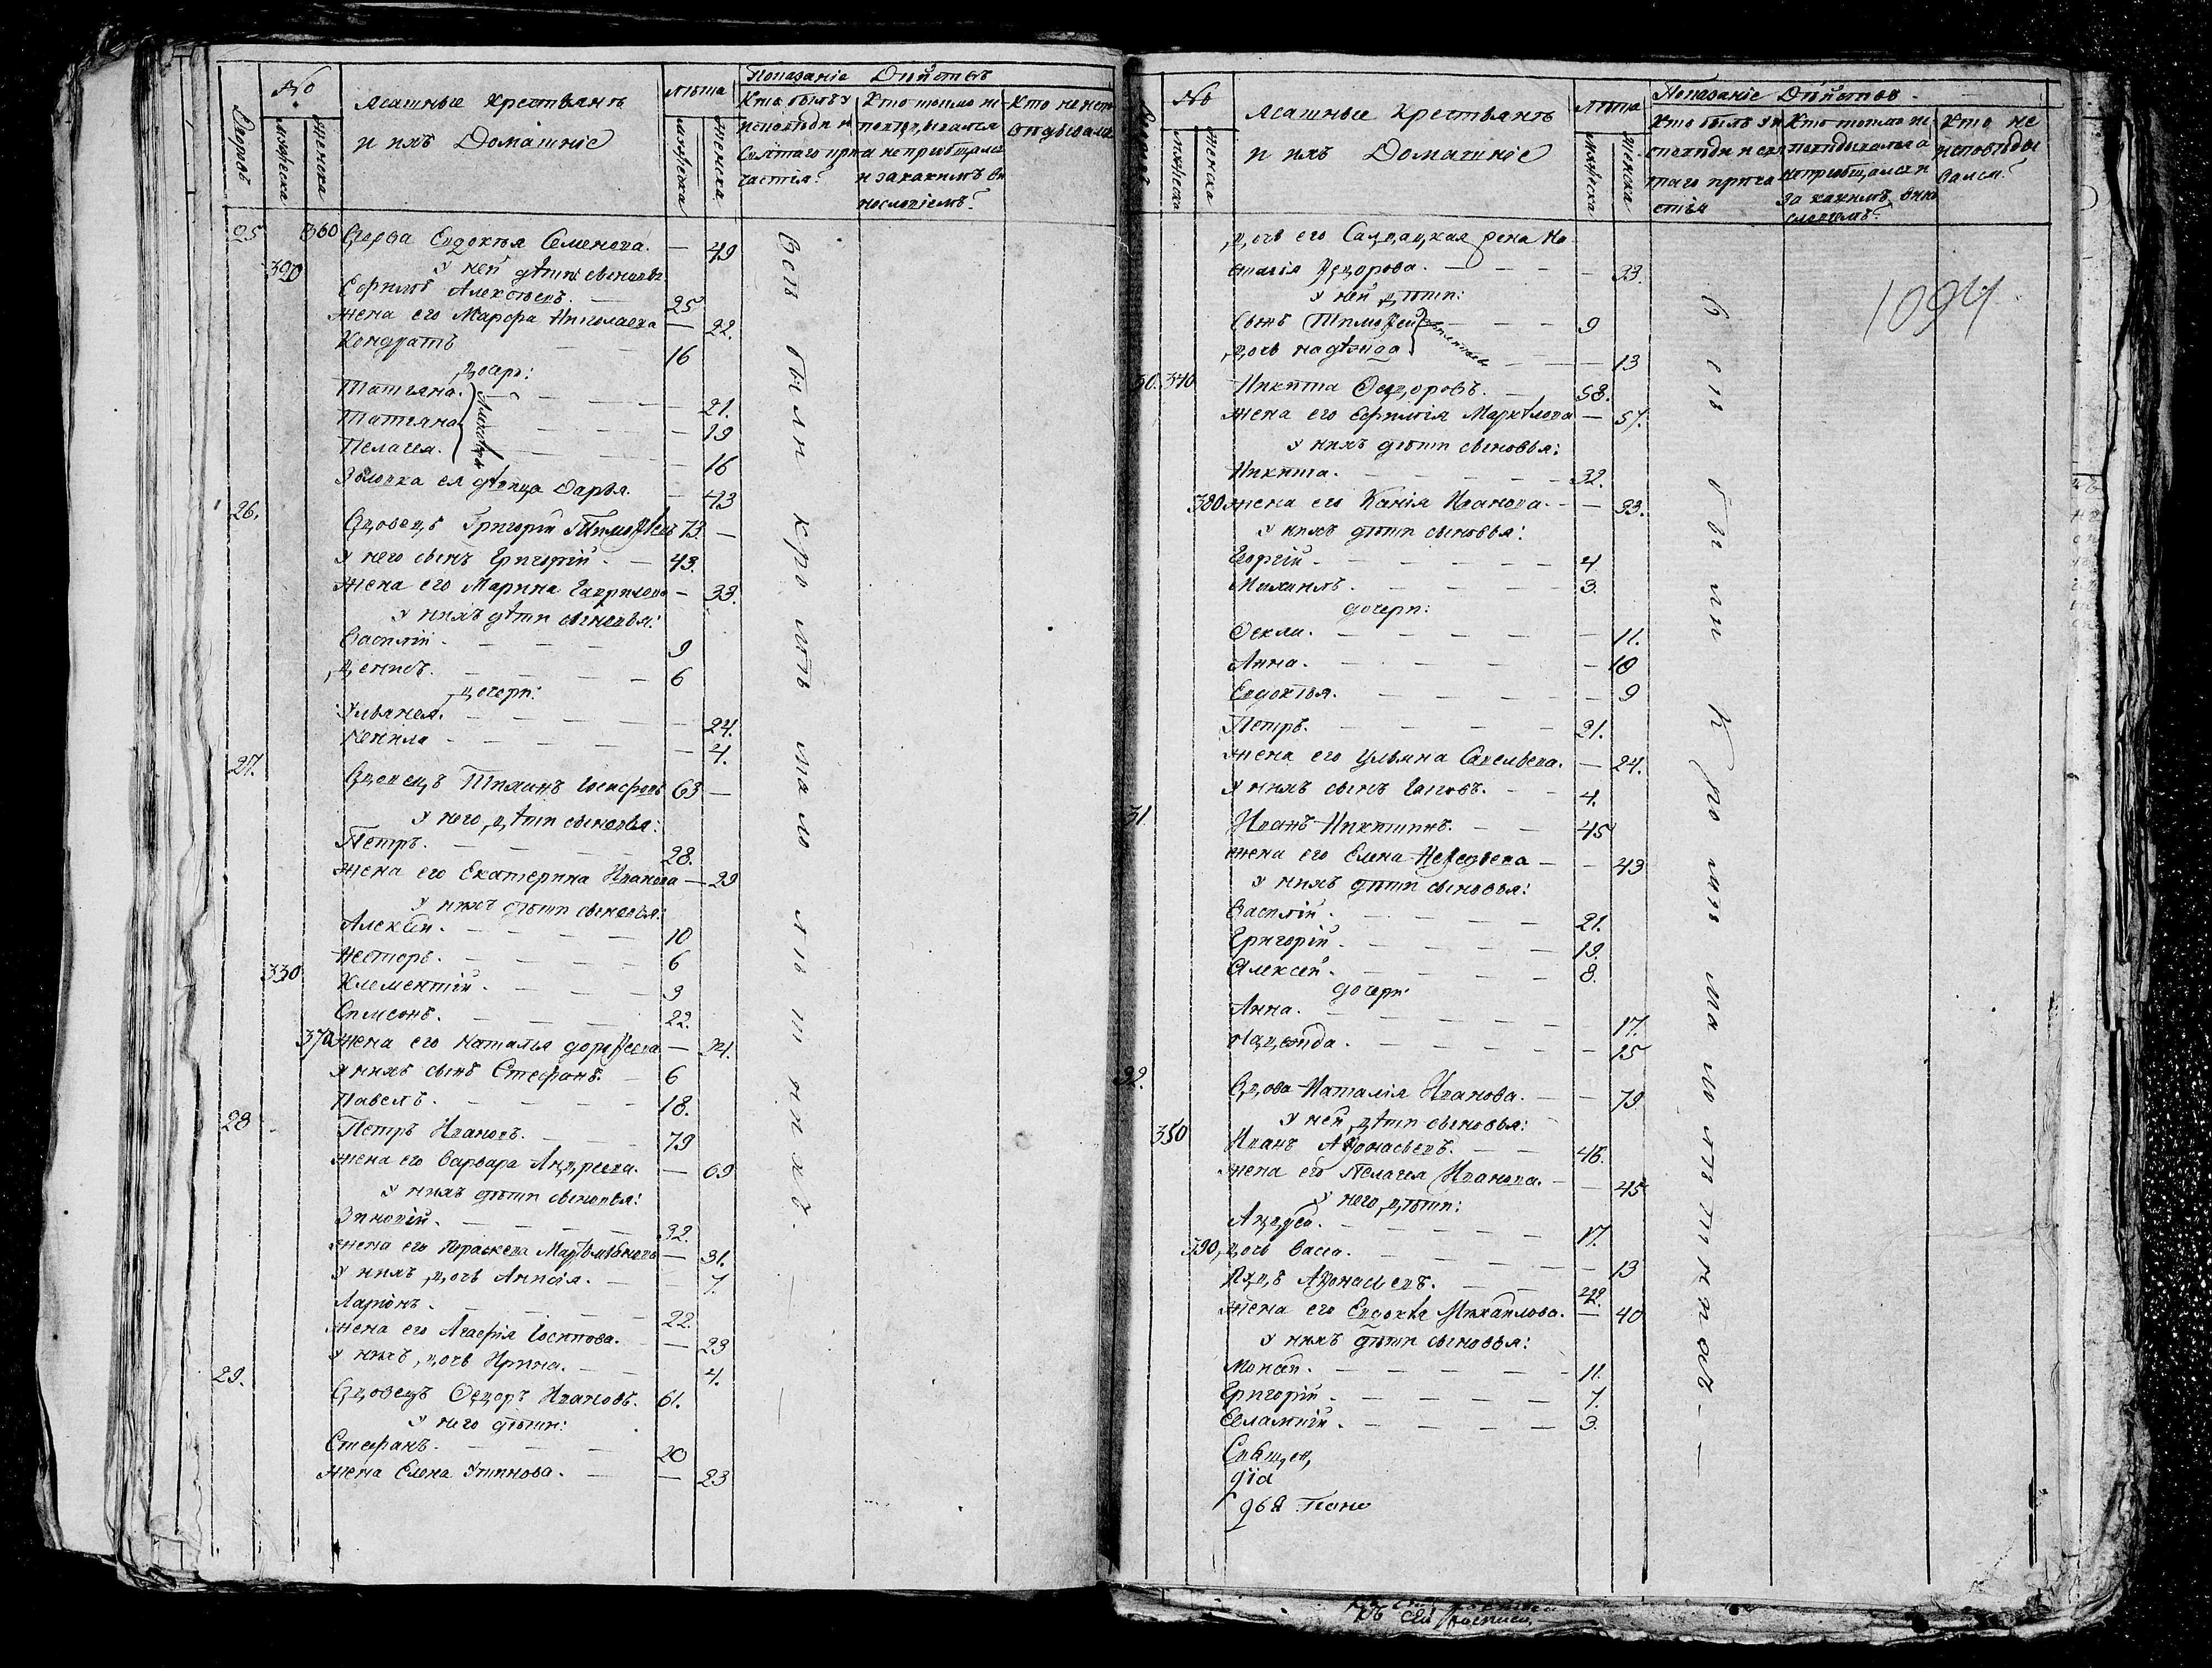 Дворовъ
No
мужеска
женска
Ясашные крестьянъ
и ихъ Домашніе
Лѣта
мужеска
женска
Показаніе Дѣйства
Кто былъ у
исповѣди и
Святаго при
частія?
Кто токмо ис
повѣдывался
а непріобщался
и за какимъ ви
нословіемъ?
Кто не испо
вѣдывался
25 360 Вдова Евдокья Семенова. — 49
320 у ней дѣти сыновья
Ефимъ Алексѣевъ. — 25
жена его Марфа Николаева — 22.
Кондратъ 16
дочери:
Татьяна. — 21.
Татьяна — 19
Пелагея. — 16
Алексѣевы
Золовка ея дѣвица Дарья. — 43
26. Вдовецъ Григорій Тимофѣевъ 73. —
у него сынъ Григорій. — 43.
жена его Марина Гаврилова — 33.
у нихъ дѣти сыновья:
Василій. — 9
Денисъ. — 6
дочери:
Ульянея. — 24.
— 4.
27. Вдовецъ Тиханъ Іосифовъ 63 —
у него дѣти сыновья:
Петръ. — 28.
жена его Екатерина Иванова — 29
у нихъ дѣти сыновья:
Алексѣй. — 10
Несторъ. — 6
330 Клементій. — 3
Симеонъ. — 22.
370 жена его Наталья Дорофеева — 24.
у нихъ сынъ Стефанъ. — 6
Павелъ. — 18.
28 Петръ Ивановъ. — 79
жена его Варвара Андреева. — 69
у нихъ дѣти сыновья:
Зиновій. — 32.
жена его Параскева — 31.
у нихъ дочь Анисія. — 7.
Ларіонъ. — 22.
жена его Агафія Іосипова. — 23
у нихъ дочь Ирина. — 4.
29. Вдовецъ Ѳедоръ Ивановъ. 61.
у него дѣти:
Стефанъ. — 20
жена Елена — 23
Всѣ были кромѣ малолѣтнихъ. —
No
мужеска
женска
Ясашные крестьянъ
и ихъ Домашніе
Лѣта
мужеска
женска
Показаніе Дѣйства
Кто былъ у и
сповѣди и свя
таго прича
стія
Кто токмо ис
повѣдывался а
непріобщался и
за какимъ вино
словіемъ?
Кто не
исповѣды
вался?
1094
дочь его Салдацкая жена На
талія Ѳедорова. — 33.
у ней дѣти:
Сынъ Тимофей — 9
дочь Надѣжда — 13
30. 340 Никита Ѳедоровъ. — 58.
жена его Ефимія — 57.
у нихъ дѣти сыновья:
Никита. — 32.
380 жена его Ксанія Иванова. — 33.
у нихъ дѣти сыновья:
Георгій. — 4
Михаилъ. — 3.
дочери:
Ѳекла. — 11.
Анна. — 10
Евдокѣя. — 9
Петръ. — 21.
жена его Ульяна Савельева. — 24.
у нихъ сынъ Іаковъ. — 4.
31. Иванъ Никитинъ. — 45
жена его Елена — 43
у нихъ дѣти сыновья:
Василій. — 21.
Григорій. — 19.
Алексѣй. — 8.
дочери
Анна. — 17.
Надежда. — 15
32. Вдова Наталія Иванова. — 79
у ней дѣти сыновья:
350 Иванъ Афонасьевъ. — 46.
жена его Пелагея Иванова. — 45
у него дѣти:
Андрей. — 17.
390 дочь Васса. — 13
Афонасьевъ. — 42.
жена его Евдокѣя Михайлова. — 40
у нихъ дѣти сыновья:
Мокѣй. — 11.
Григорій. — 7.
Евлампій. — 3.
Всѣ были кромѣ малолѣтнихъ —
Свѣщен,
дiа